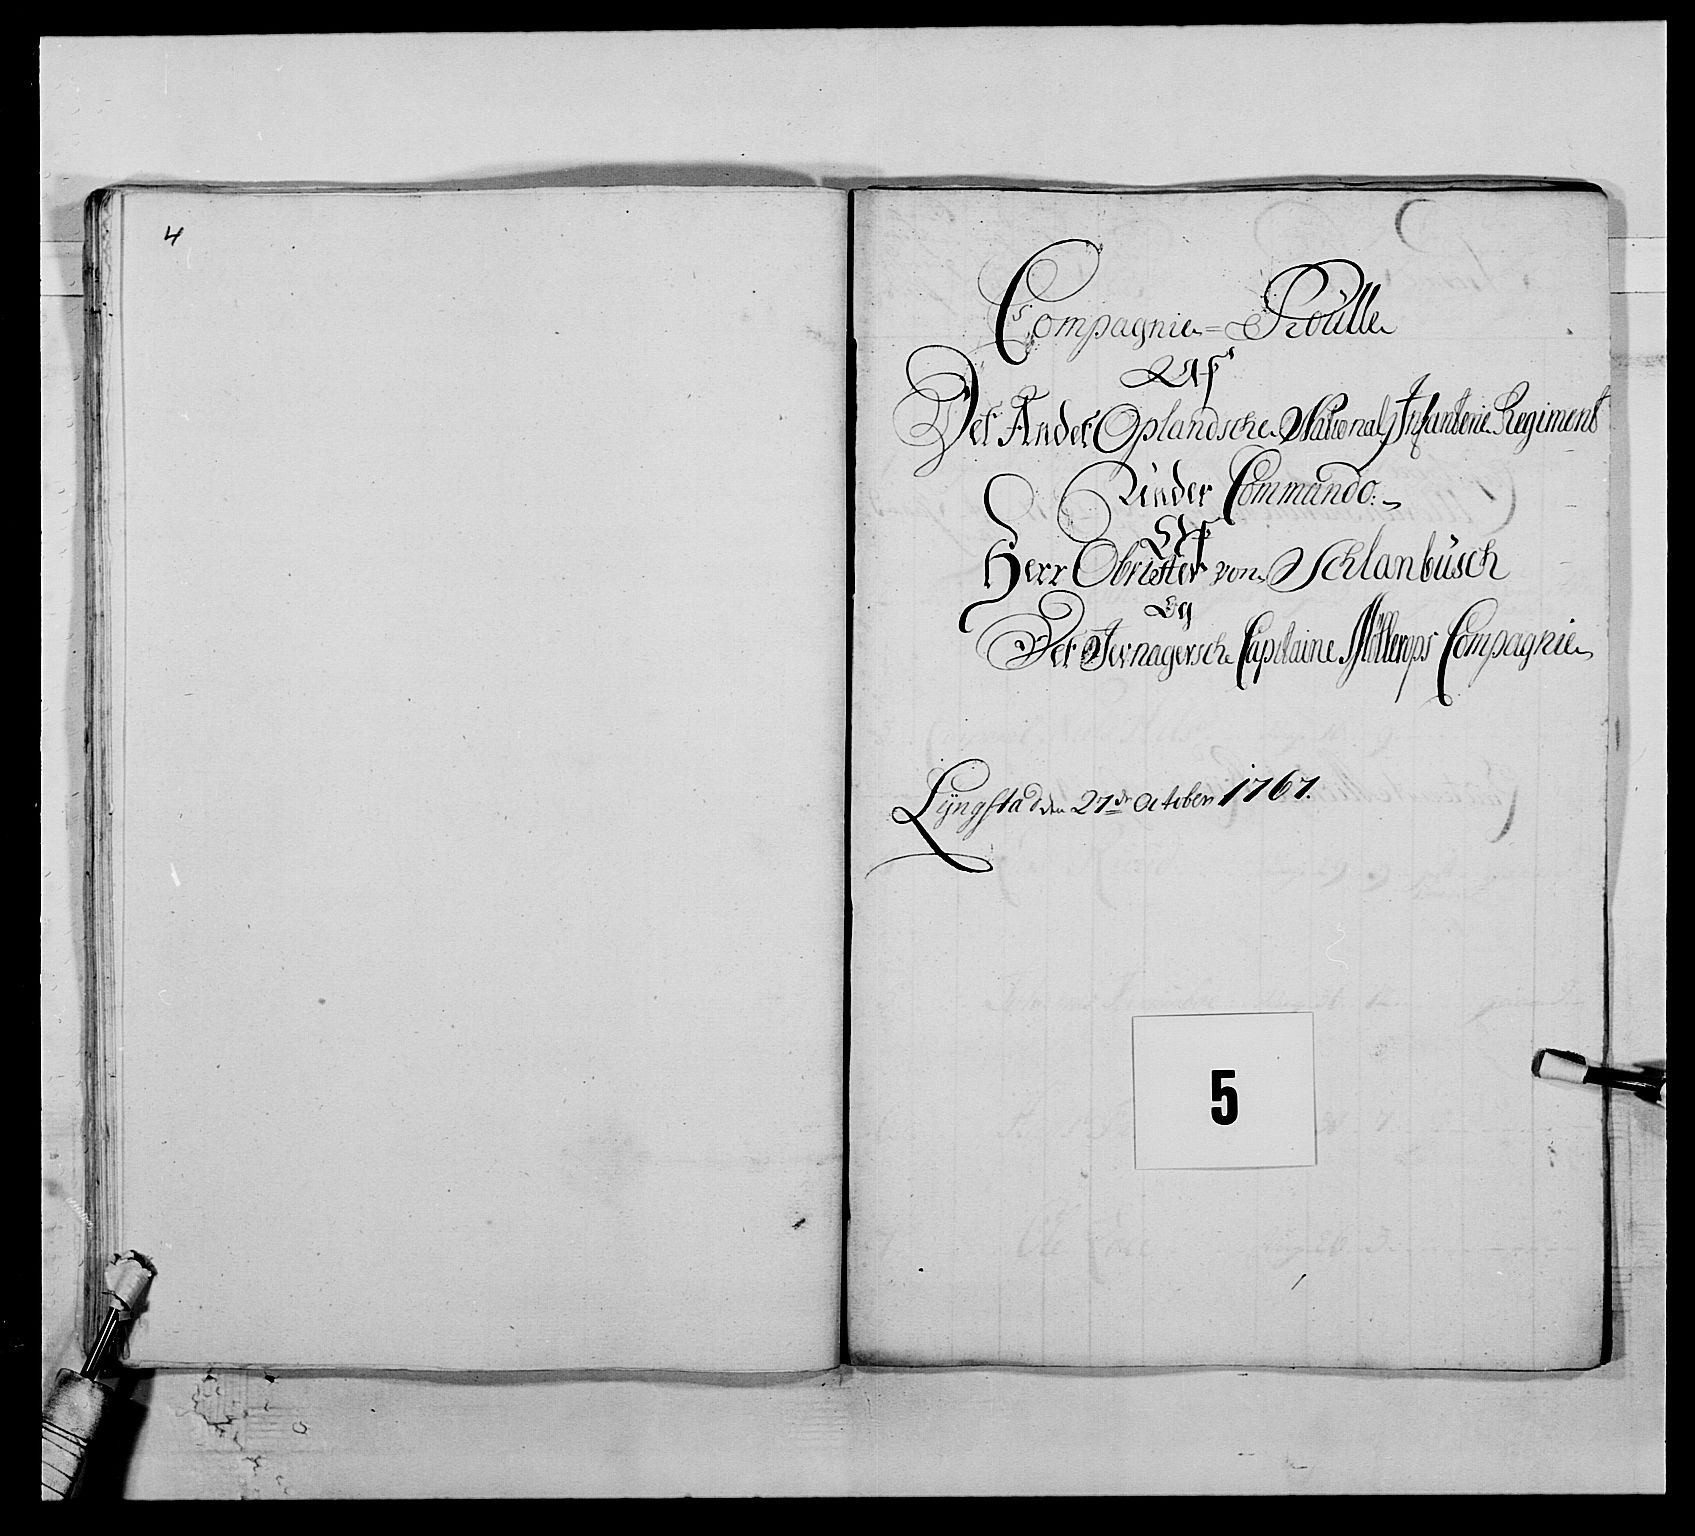 4
Compagnie=Roulle
Af
Det Andet Oplandsche National Infanterie Regiment
Under Commando
Af
Herr Obrister von Schlanbusch
Og
Det Jernagersche Capitaine Möllerops Compagnie
Lyngstad den 27de October 1767.
5